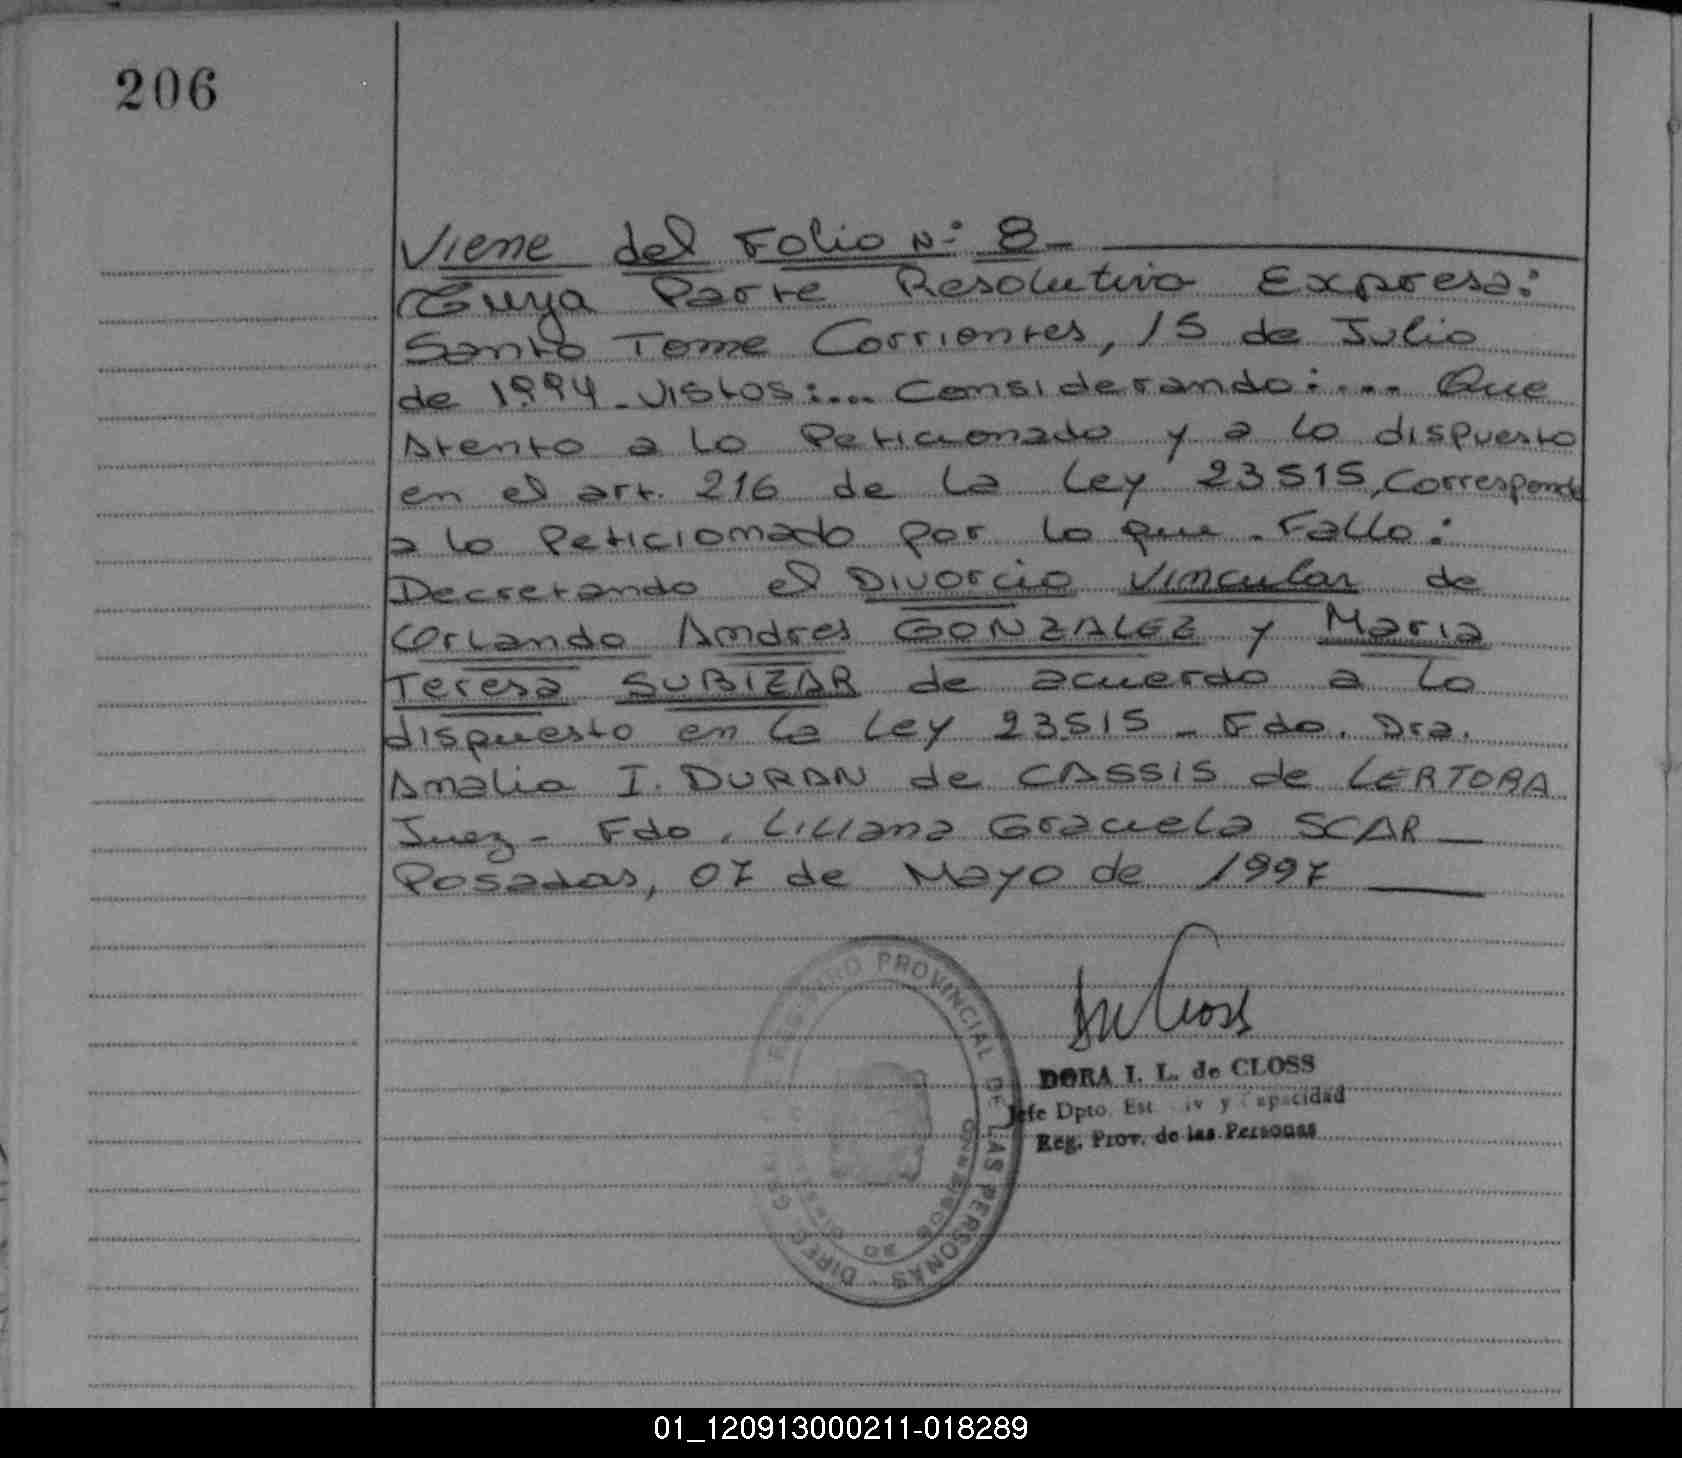 206
Viene del Folio N: 8
Cuya Parte Resolutiva Expresa:
Santo Tome Corrientes, 15 de Julio
de 1994 - Vistos:... Considerando:... Que
Atento a lo Peticionado y a lo dispuesto
en el art. 216 de la Ley 23515, Corresponde
a lo Peticionado por lo que - Fallo:
Decretando el Divorcio Vincular de
Orlando Andres GONZALEZ y Maria
Teresa SUBIZAR de acuerdo a lo
dispuesto en la Ley 23515 - Fdo. Dra.
Amalia I. DURAN de CASSIS de LERTORA
Juez - Fdo. Liliana Graciela SCAR
Posadas, 07 de Mayo de 1997
REGISTRO PROVINCIAL DE LAS PERSONAS
DORA I. L. de CLOSS
Jefe Dpto. Est. Civ y Capacidad
Reg. Prov. de las Personas
01_120913000211-018289